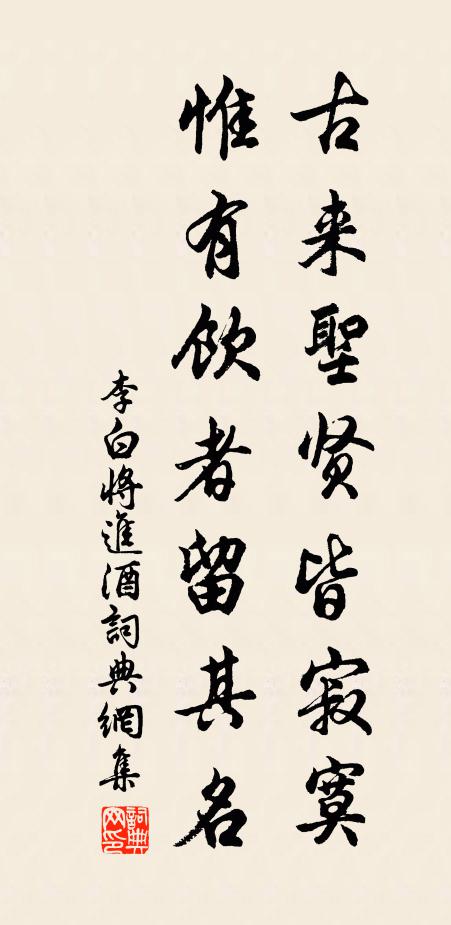 古来聖贤皆寂寞
惟有饮者留其名
李白將進酒詞典網集
詞典网印